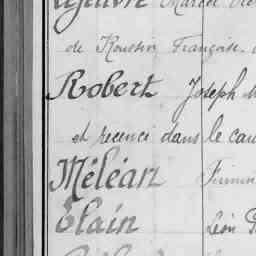 Lefeuvre Marcel
de Roussin Françoise
Robert Joseph M
et recenci dans le can
Méléart Firmin
Elain Léon P